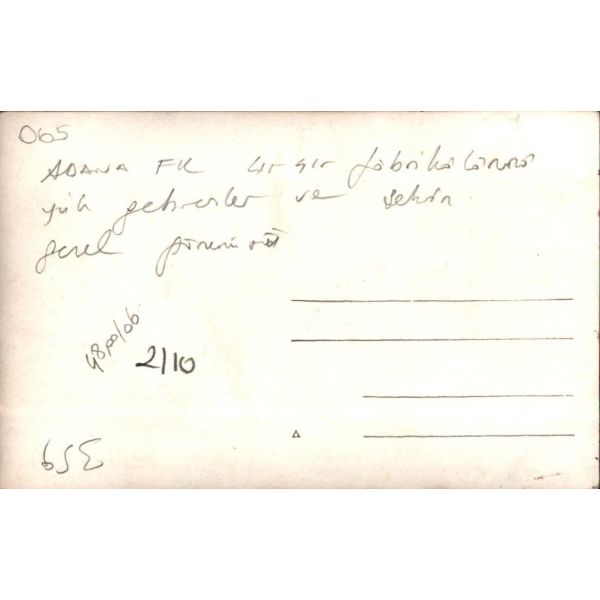 065
ADANA FK çır çır fabrikalarına
yük getirenler ve şehrin
genel görünüşü
2/10